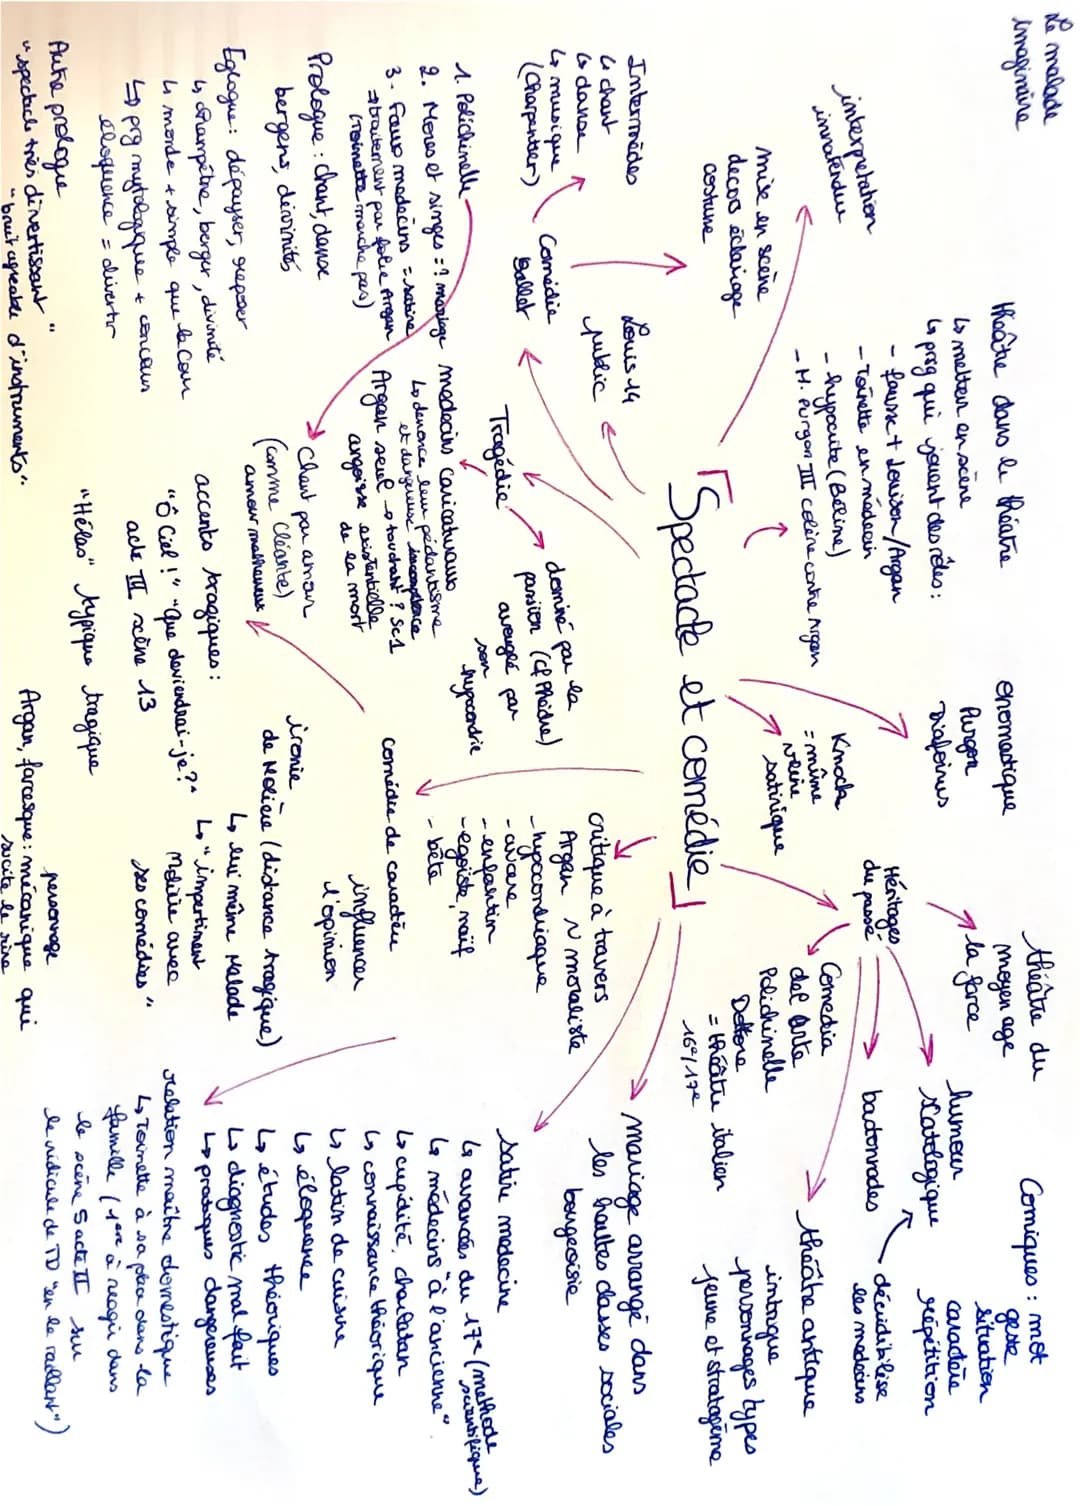 Le malade
imaginaire
interpretation
inattendue
théâtre dans le théatre
↳ metteur en scène
↳ prsg qui jouent des rôles:
- fausse + Louison/Argan
- Toinette en médecin
- hypocrite (Béline)
- M. Purgon III colère contre Argan
onomastique
Purgon
Diafoirus
Knock
= même
veine
satirique
théâtre du
moyen age
la farce
Héritages
du passé
humour
scatologique
bastonnades
décrédibilise
les médecins
Comiques : mot
geste
situation
caractère
répétition
Comedia
del arte
Polichinelle
Dottore
= théâtre italien
16e/17e
théâtre antique
intrigue
personnages types
jeune et stratagème
mise en scène
decors éclairage
costume
Intermèdes
↳ chant
↳ danse
↳ musique
(Charpentier)
Comédie
Ballet
Louis 14
public
Spectacle et comédie
Tragédie
dominé par la
passion (cf Phèdre)
aveuglé par
son
hypocondrie
critique à travers
Argan ~ moraliste
- hypocondriaque
- avare
- enfantin
- egoïste, naïf
- bête
mariage arrangé dans
les hautes classes sociales
bourgeoisie
1. Polichinelle
2. Mores et singes =? mariage
3. Faux medecins = satire
⇒ traitement par folie Argan
(Toinette marche pas)
medecins caricaturaux
↳ denonce leur pédantisme
et dangereuse incompétence
Argan seul → touchant ? Sc 1
angoisse existentielle
de la mort
Prologue : chant, danse
bergers, divinités
Chant par amour
(comme Cléante)
amour malheureux
comédie de caractère
influencer
l'opinion
satire medecine
↳ avancées du 17e (methode
scientifique)
↳ médecins "à l'ancienne"
↳ cupidité, charlatan
↳ connaissance théorique
↳ latin de cuisine
↳ éloquence
↳ études théoriques
↳ diagnostic mal fait
↳ pratiques dangereuses
Eglogue : dépayser, reposer
↳ champêtre, berger, divinité
↳ monde + simple que la Cour
↳ prg mythologique + concours
eloquence = divertir
accents tragiques :
"Ô Ciel !" "Que deviendrai-je ?"
acte III scène 13
"Hélas" typique tragique
ironie
de Molière (distance tragique)
↳ lui même Malade
↳ "impertinent
Molière avec
ses comédies"
relation maître domestique
↳ Toinette à sa place dans la
famille (1ère à reagir dans
la scène 5 acte II sur
le ridicule de TD "en le raillant")
Autre prologue
"spectacle très divertissant"
"bruit agréable d'instruments".
personnage
Argan, farcesque : mécanique qui
suscite le rire